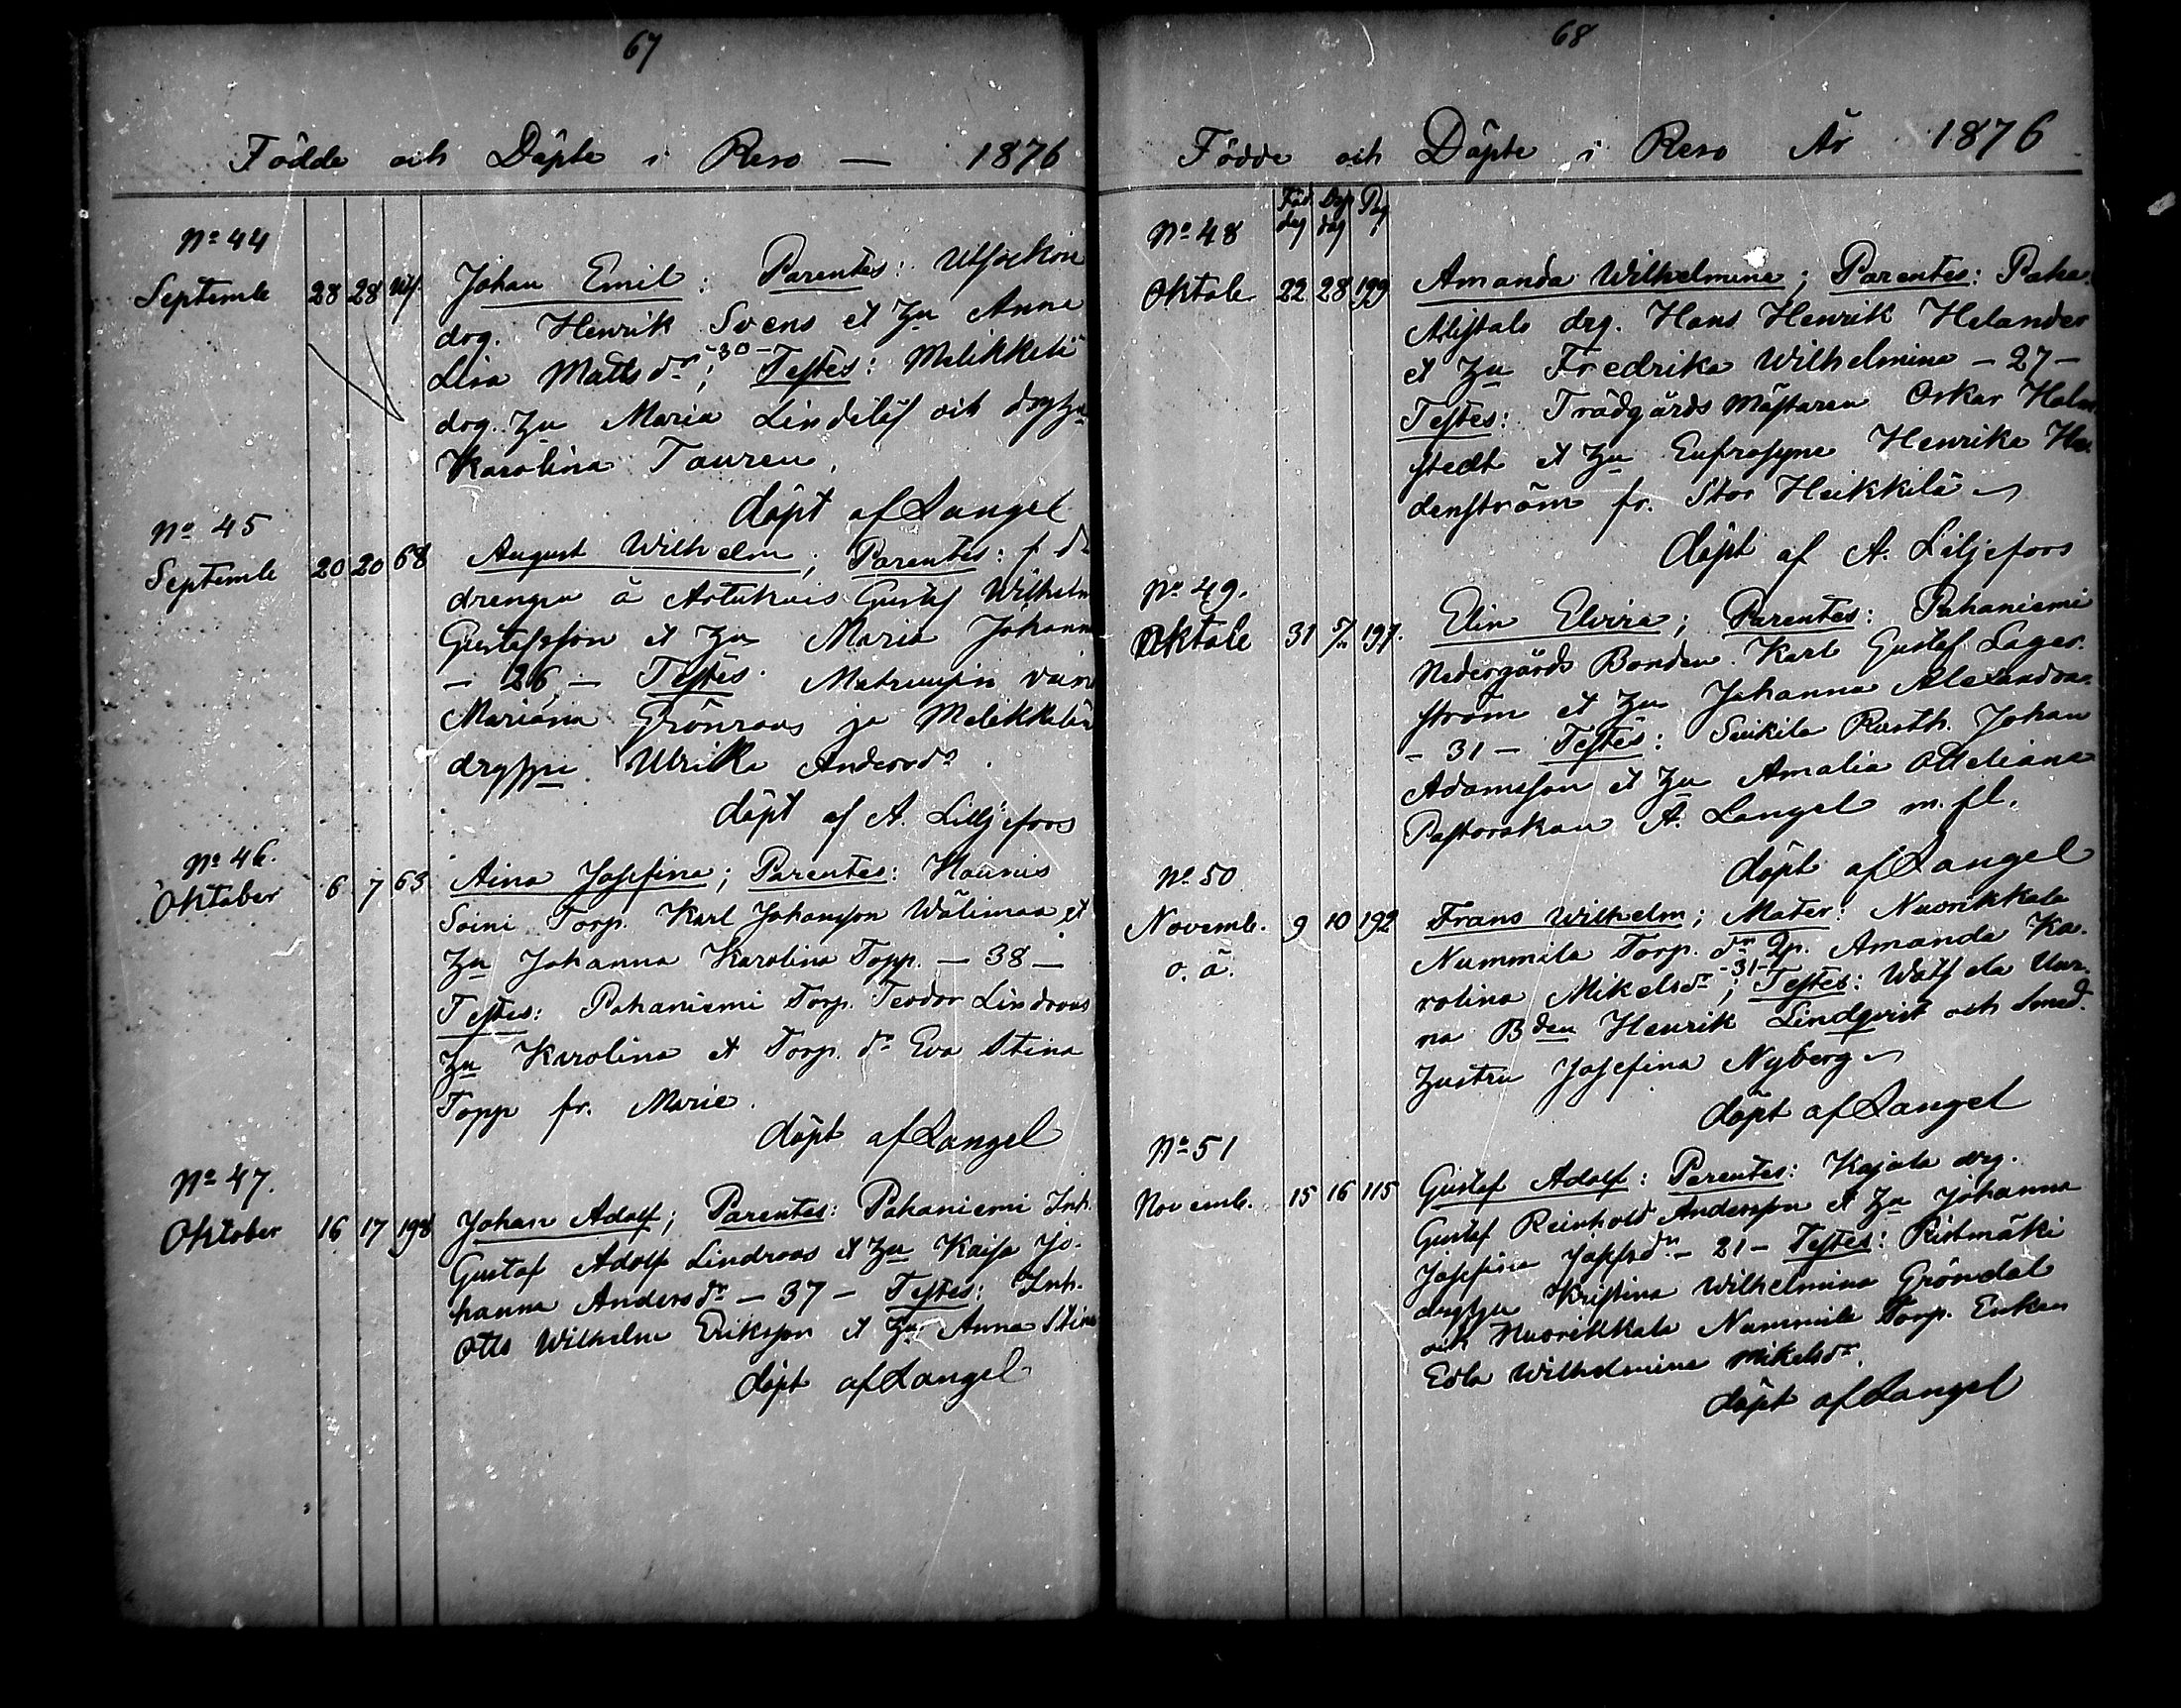 67
Födde och Döpte i Reso — 1876
No 44
Septemb 28 28 Johan Emil: Parentes:
drg. Henrik Svens et Zu Anna
Lisa Matts dr -30-; Testes: Metikkelä
drg. Zu Maria Lindelöf och drgZu
Karolina Tauren.
döpt af Langel
No 45
Septemb 20 20 68 August Wilhelm; Parentes: f. d.
drengen å Artukais Gustaf Wilhelm
Gustafsson et Zu Maria Johanna
— 26 — Testes:
Mariana Grönroos ja Metikkelän
Ulrika Andersdr.
döpt af A. Liljefors
No 46.
Oktober 6 7 63 Aina Josefina; Parentes: Haunis
Soini Torp. Karl Johansson Wälimaa et
Zu Johanna Karolina Topp. — 38 —
Testes: Pahaniemi Torp. Teodor Lindroos
Zu Karolina et Torp. dr Eva Stina
Topp fr. Marie.
döpt af Langel
No 47.
Oktober 16 17 198 Johan Adolf; Parentes: Pahaniemi Inh.
Gustaf Adolf Lindroos et Zu Kaisa Jo-
hanna Anders dr — 37 — Testes: Inh.
Otto Wilhelm Eriksson et Zu Anna Stina
döpt af Langel
68
Födde och Döpte i Reso År 1876
Föd. dag Döp dag Pag
No 48
Oktob 22 28 199 Amanda Wilhelmina; Parentes: Paha-
Alistalo drg. Hans Henrik Helander
et Zu Fredrika Wilhelmina — 27 —
Testes: Trädgårds Mästaren Oskar Holm-
stedt et Zu Eufrosyne Henrika
denström fr. Stor Heikkilä
döpt af A. Liljefors
No 49.
Oktob 31 5/11 197. Elin Elvira; Parentes: Pahaniemi
Nedergårds Bonden Karl Gustaf Lager-
ström et Zu Johanna Alexandra
— 31 — Testes: Suikila Rusth. Johan
Adamsson et Zu Amalia Ottiliana
Pastorskan A. Langel m. fl.
döpt af Langel
No 50
Novemb. 9 10 192 Frans Wilhelm; Mater: Nuorikkala
o. ä. Nummila Torp. dr Qp. Amanda Ka-
rolina Mikelsdr -31-; Testes:
na Bden Henrik Lindqvist och Smed.
Zustru Josefina Nyberg
döpt af Langel
No 51
Novemb. 15 16 115 Gustaf Adolf: Parentes: Kajala drg.
Gustaf Reinhold Andersson et Zu Johanna
Josefina Josefsdr — 21 — Testes: Ristimäki
drgZu Kristina Wilhelmina Gröndal
och Nuorikkala Nummila Torp. Enkan
Edla Wilhelmina Mikelsdr.
döpt af Langel